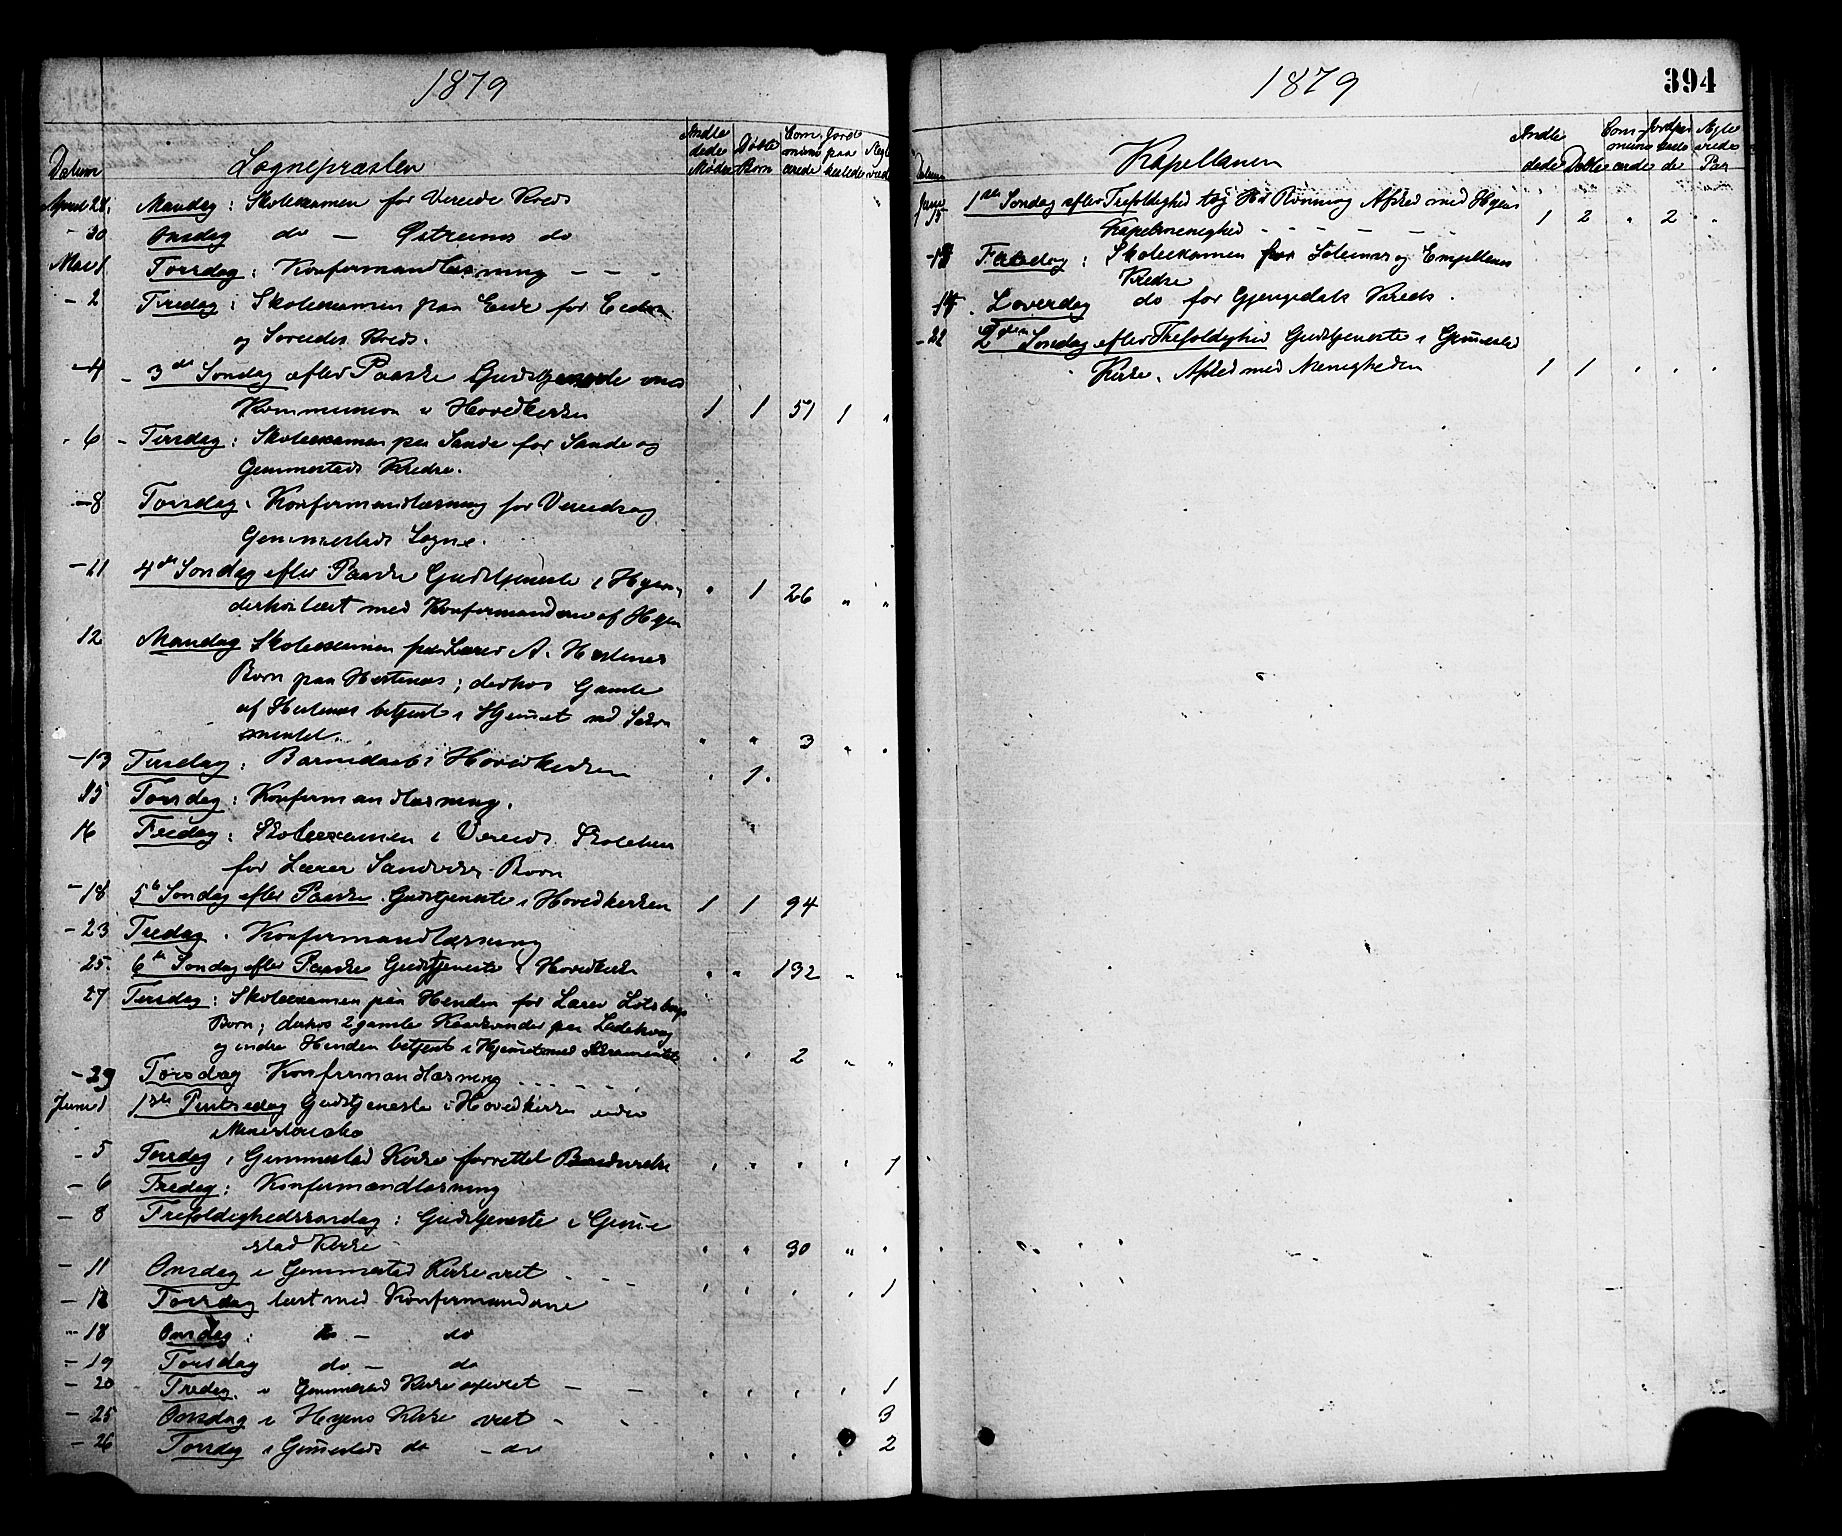 1879
Datum
Sognepræsten
Indledede Mødre
Døbte Børn
Communicerede
Jordpaakastede
Ægteviede
April 28. Mandag: Skoleexamen for Vereide Kreds
- 30 Onsdag do — Østrems do
Mai 1 Torsdag: Konfirmandlæsning - - -
- 2 Fredag: Skoleexamen paa Eide for Eides
og Soreides Kreds.
- 4 - 3die Søndag efter Paaske Gudstjeneste med
Kommunion i Hovedkirken 1 1 51 1 "
- 6 - Tirsdag: Skoleexamen paa Sande for Sande og
Gemmestads Kredse.
- 8 Torsdag. Konfirmandlæsning for Vereids og
Gemmestads Sogne.
- 11 4de Søndag efter Paaske Gudstjeneste i Hyen,
derhos læst med Konfirmanderne af Hyen " 1 26 " "
12 Mandag Skoleexamen for Lærer A. Hestenes
Børn paa Hestenæs; derhos Gamle
af Hestenæs betjent i Hjemmet med Sakra
mentet. " " 3 " "
- 13 Tirsdag. Barnedaab i Hovedkirken . 1.
15 Torsdag: Konfirmandlæsning.
16 Fredag: Skoleexamen i Vereids Skolehus
for Lærer Sandviks Børn
- 18 5te Søndag efter Paaske. Gudstjeneste i Hovedkirken 1 1 94
- 23 Fredag. Konfirmandlæsning
25. 6te Søndag efter Paaske Gudstjeneste i Hovedkirke " " 132 " "
27 Tirsdag: Skoleexamen paa Henden for Lærer
Børn; derhos 2 gamle paa
og indre Henden betjent i Hjemmet med Sakramentet . " 2 " "
- 29 Torsdag Konfirmandlæsning . . . . .
Juni 1 1ste Pintsedag Gudstjeneste i Hovedkirken uden
Ministerielle
- 5 Torsdag i Gemmestad Kirke forrettet Brudevielse . " . . 1
- 6 Fredag: Konfirmandlæsning
- 8 Trefoldighedssøndag: Gudstjeneste i Gemme
stad Kirke - " " 30 " "
- 11 Onsdag i Gemmestad Kirke viet - - - " " . . 1
- 12 Torsdag læst med Konfirmanderne
- 18 Onsdag: do — do
- 19 Torsdag do — do
- 20 Fredag. i Gemmestad Kirke viet — — " . " " 1
- 25 Onsdag i Hyens Kirke viet - - - 3
- 26 Torsdag i Gemmestads do — do . . . . 2
1879
394
Datum
Kapellanen
Indledede
Døbte
Communicerede
Jordpaakastede
Ægteviede Par
Juni 15 1ste Søndag efter Trefoldighed tog Hr Rønning Afsked med Hyens
Kapelmenighed - - - - - - 1 2 " 2 "
- 13 Fredag: Skoleexamen for Solemer og
Kredse
- 14. Løverdag do for Gjengedals Kreds.
- 22 2den Søndag efter Trefoldighed Gudstjeneste i Gemmestad
Kirke. Afsked med Menigheden 1 1 " . "